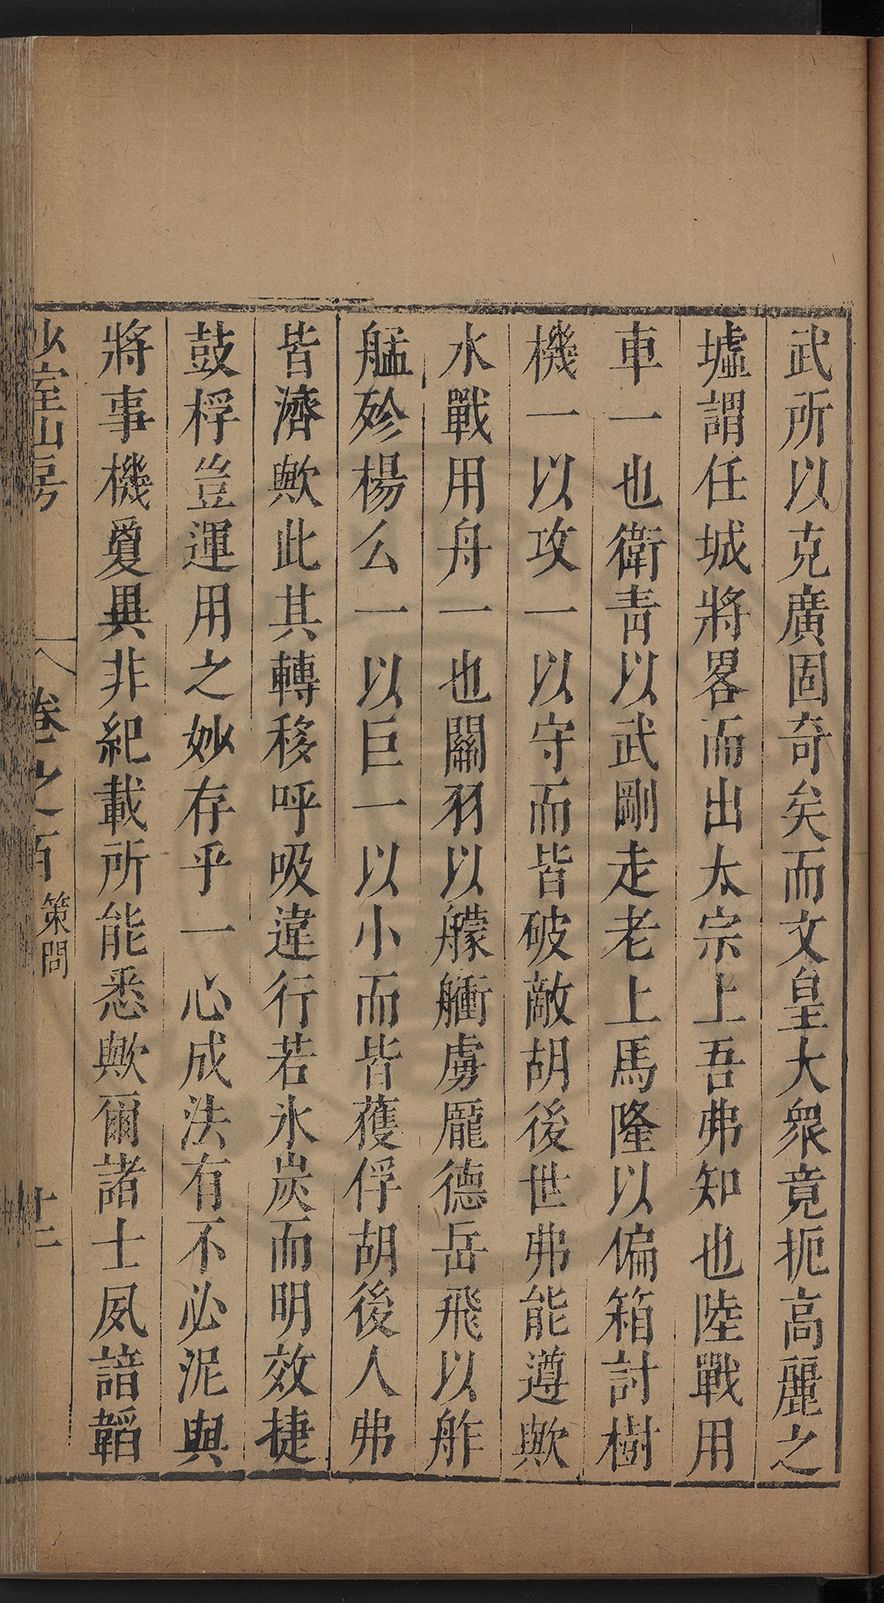 武所以克廣固奇矣而文皇大衆竟扼高麗之
墟謂任城將畧而出太宗上吾弗知也陸戰用
車一也衛青以武剛走老上馬隆以偏箱討樹
機一以攻一以守而皆破敵胡後世弗能遵歟
水戰用舟一也關羽以艨艟虜龐德岳飛以舴
艋殄楊么一以巨一以小而皆獲俘胡後人弗
皆濟歟此其轉移呼吸違行若氷炭而明效捷
鼓桴豈運用之妙存乎一心成法有不必泥與
將事機夐異非紀載所能悉歟爾諸士夙諳韜
少室山房
卷之百
策問
十二